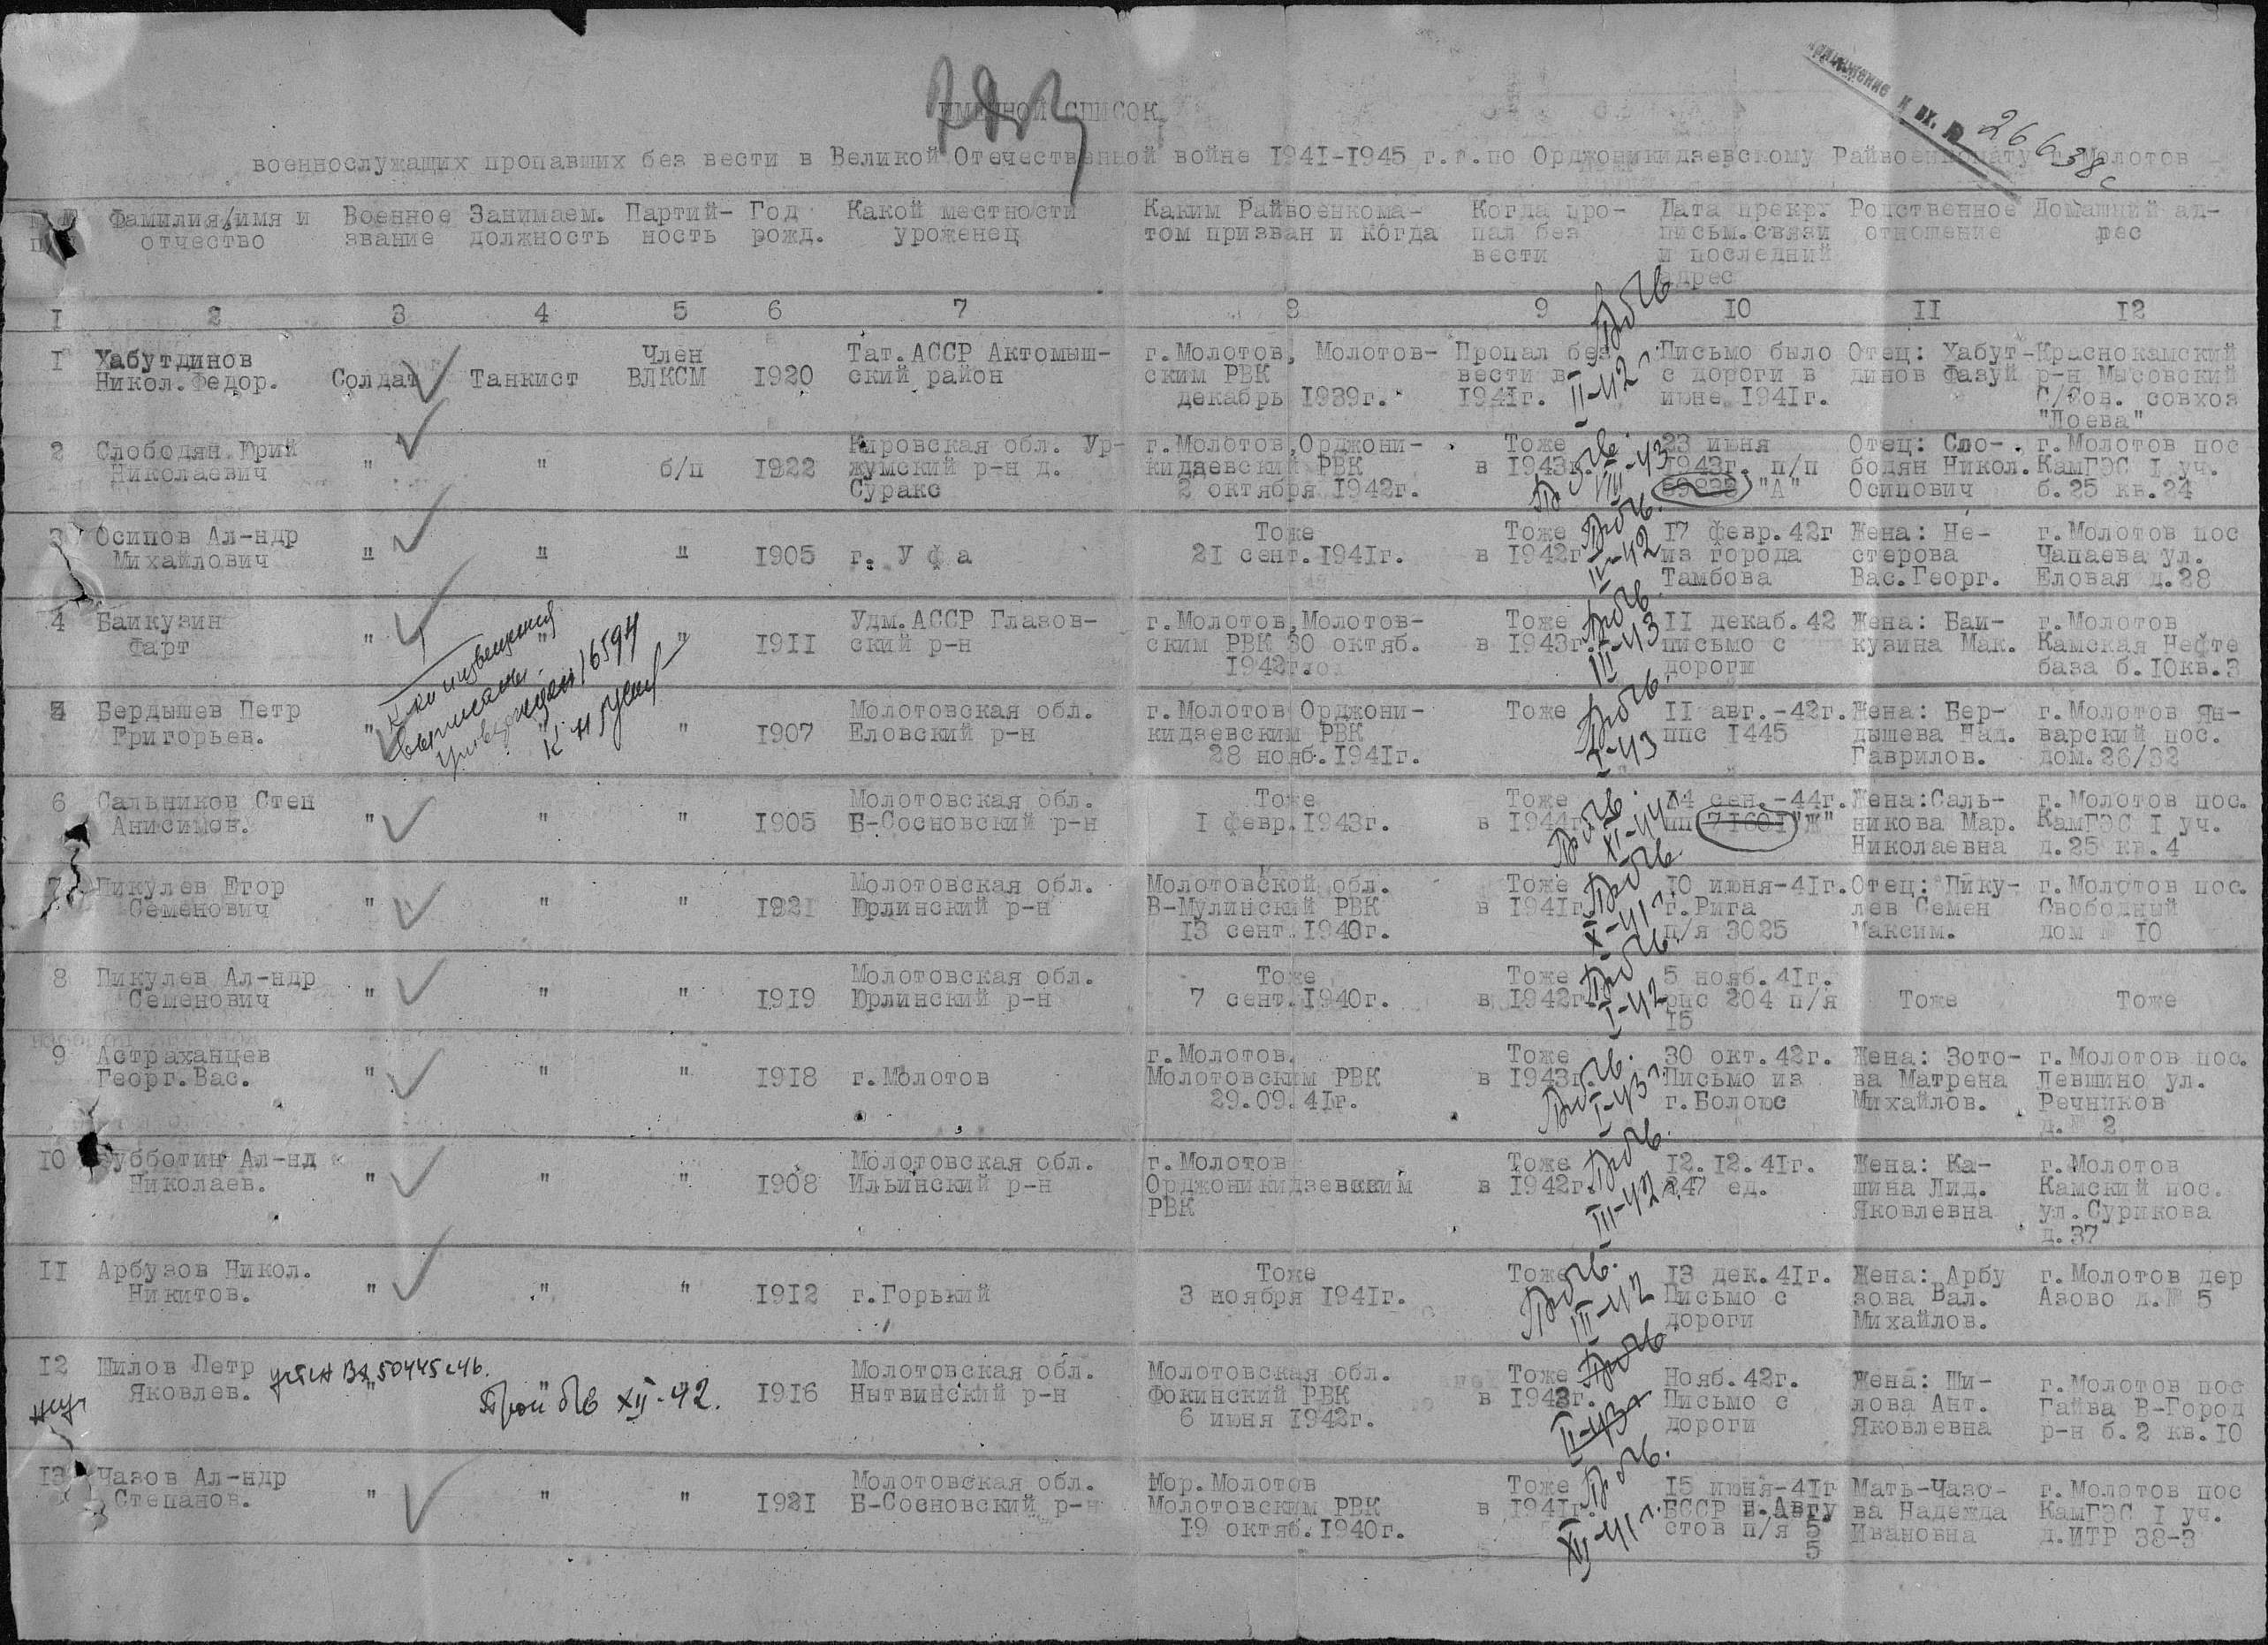 ИМЕННОЙ СПИСОК
Приложение к вх. № 26638с
военнослужащих пропавших без вести в Великой Отечественной войне 1941-1945 г.г. по Орджоникидзевскому Райвоенкомату г.Молотов
Фамилия, имя и отчество
Военное звание
Занимаем. должность
Партий-ность
Год рожд.
Какой местности уроженец
Каким Райвоенкома-том призван и когда
Когда про-пал без вести
Дата прекр. письм.связи и последний адрес
Родственное отношение
Домашний ад-рес
1 2 3 4 5 6 7 8 9 10 11 12
1 Хабутдинов Никол.Федор. Солдат Танкист Член ВЛКСМ 1920 Тат.АССР Актомыш-ский район г.Молотов, Молотов-ским РВК декабрь 1939г. Пропал без вести в 1941г. Проп б/в II-42 г Письмо было с дороги в июне 1941г. Отец: Хабут-динов Фазуй Краснокамский р-н Мысовский С/Сов. совхоз "Лоева"
2 Слободян Юрий Николаевич " " б/п 1922 Кировская обл. Ур-жумский р-н д. Суракс г.Молотов,Орджони-кидзевский РВК 2 октября 1942г. Тоже в 1943г. Пр б/в. VIII-43 23 июня 1943г. п/п "А" Отец: Сло-бодян Никол. Осипович г.Молотов пос КамГЭС I уч. б.25 кв.24
3 Осипов Ал-ндр Михайлович " " " 1905 г. У ф а Тоже 21 сент.1941г. Тоже в 1942г Проб/в. IV-42 17 февр.42г из города Тамбова Жена: Не-стерова Вас.Георг. г.Молотов пос Чапаева ул. Еловая д.28
4 Баикузин Фарт " " " 1911 Удм.АССР Глазов-ский р-н г.Молотов,Молотов-ским РВК 30 октяб. 1942г. Тоже в 1943г. Проб/в. III-43 11 декаб.42 письмо с дороги Жена: Баи-кузина Мак. г.Молотов Камская Нефте база б.10кв.3
Бердышев Петр Григорьев. " " " 1907 Молотовская обл. Еловский р-н г.Молотов Орджони-кидзевским РВК 28 нояб.1941г. Тоже Проб/в. I-43 11 авг.-42г. ппс 1445 Жена: Бер-дышева Над. Гаврилов. г.Молотов Ян-варский пос. дом.26/32
6 Сальников Степ Анисимов. " " " 1905 Молотовская обл. Б-Сосновский р-н Тоже 1 февр.1943г. Тоже в 1944г. Проб/в. XI-44 14 сен.-44г. пп 71604"Ж" Жена:Саль-никова Мар. Николаевна г.Молотов пос. КамГЭС I уч. д.25 кв.4
7 Пикулев Егор Семенович " " " 1921 Молотовская обл. Юрлинский р-н Молотовской обл. В-Мулинский РВК 13 сент.1940г. Тоже в 1941г. Проб/в X-41 г 10 июня-41г. г.Рига п/я 3025 Отец: Пику-лев Семен Максим. г.Молотов пос. Свободный дом 10
8 Пикулев Ал-ндр Семенович " " " 1919 Молотовская обл. Юрлинский р-н Тоже 7 сент.1940г. Тоже в 1942г. Проб/в. I-42 5 нояб.41г. ппс 204 п/я 15 Тоже Тоже
9 Астраханцев Георг.Вас. " " " 1918 г.Молотов г.Молотов, Молотовским РВК 29.09.41г. Тоже в 1943г. Проб/в. I-43 г. 30 окт.42г. Письмо из г.Болоюс Жена: Зото-ва Матрена Михайлов. г.Молотов пос. Левшино ул. Речников д.№ 2
10 Субботин Ал-нд Николаев. " " " 1908 Молотовская обл. Ильинский р-н г.Молотов Орджоникидзевским РВК Тоже в 1942г. Проб/в. III-42 г. 12.12.41г. 247 ед. Жена: Ка-шина Лид. Яковлевна г.Молотов Камский пос. ул.Сурикова д.37
11 Арбузов Никол. Никитов. " " " 1912 г.Горький Тоже 3 ноября 1941г. Тоже Проб/в. III-42 13 дек.41г. Письмо с дороги Жена: Арбу зова Вал. Михайлов. г.Молотов дер Азово д.№ 5
12 Шилов Петр Яковлев. Проп б/в XII-42. 1916 Молотовская обл. Нытвинский р-н Молотовская обл. Фокинский РВК 6 июня 1942г. Тоже в 1943г. Проб/в II-43г Нояб.42г. Письмо с дороги Жена: Ши-лова Ант. Яковлевна г.Молотов пос Гайва В-Город р-н б.2 кв.10
13 Чазов Ал-ндр Степанов. " " " 1921 Молотовская обл. Б-Сосновский р-н Мор.Молотов Молотовским РВК 19 октяб.1940г. Тоже в 1941г. Проб/в. XII-41 г. 15 июня-41г БССР г.Авгу стов п/я 5 5 Мать-Чазо-ва Надежда Ивановна г.Молотов пос КамГЭС I уч. д.ИТР 38-3